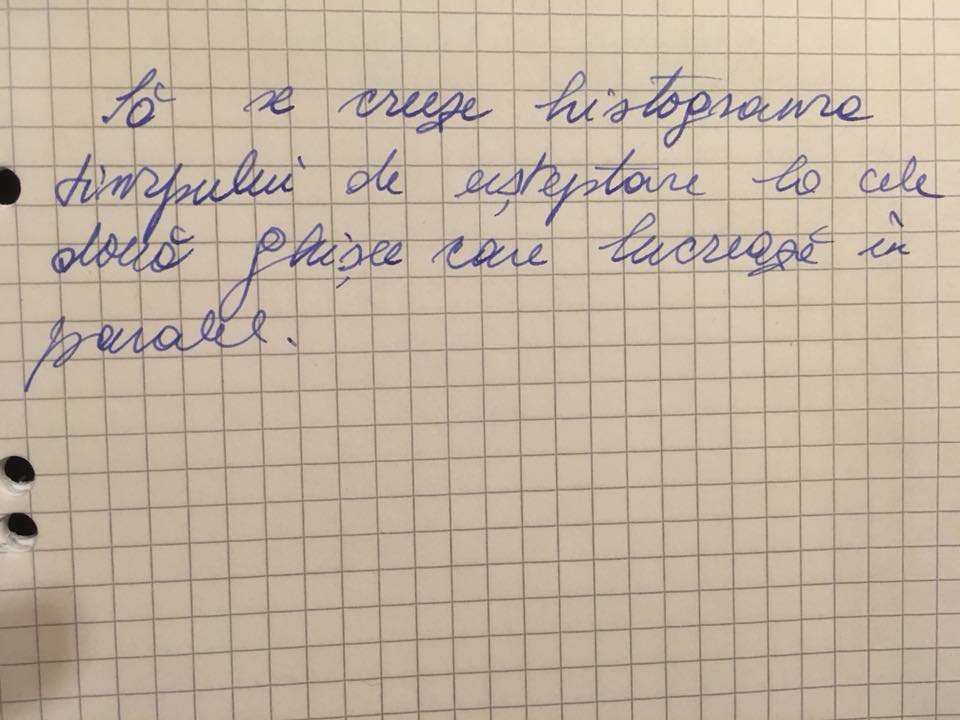 Să se creeze histograma
timpului de așteptare la cele
două ghișee care lucrează în
paralel.